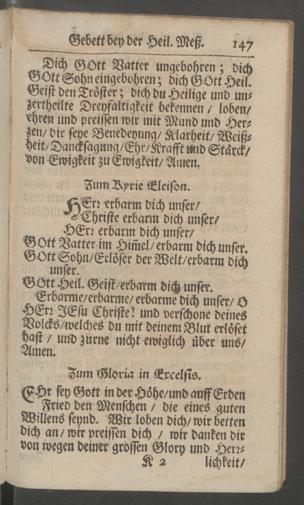 Gebett bey der Heil. Meß. 147
Dich GOtt Vatter ungebohren; dich
GOtt Sohn eingebohren; dich GOtt Heil.
Geist den Tröster; dich du Heilige und un-
zertheilte Dreyfaltigkeit bekennen / loben/
ehren und preissen wir mit Mund und Her-
zen/ dir seye Benedeyung/ Klarheit/ Weiß-
heit/ Dancksagung/ Ehr/ Krafft und Stärck/
von Ewigkeit zu Ewigkeit/ Amen.
Zum Kyrie Eleison.
HErr erbarm dich unser/
Christe erbarm dich unser/
HErr erbarm dich unser/
GOtt Vatter im Him̃el/ erbarm dich unser.
GOtt Sohn/ Erlöser der Welt/ erbarm dich
unser.
GOtt Heil. Geist/ erbarm dich unser.
Erbarme/ erbarme/ erbarme dich unser/ O
HErr JEsu Christe! und verschone deines
Volcks/ welches du mit deinem Blut erlöset
hast / und zürne nicht ewiglich über uns/
Amen.
Zum Gloria in Excelsis.
EHr sey Gott in der Höhe/ und auff Erden
Fried den Menschen / die eines guten
Willens seynd. Wir loben dich/ wir betten
dich an/ wir preissen dich / wir danken dir
von wegen deiner grossen Glory und Herr-
K 2 lichkeit/